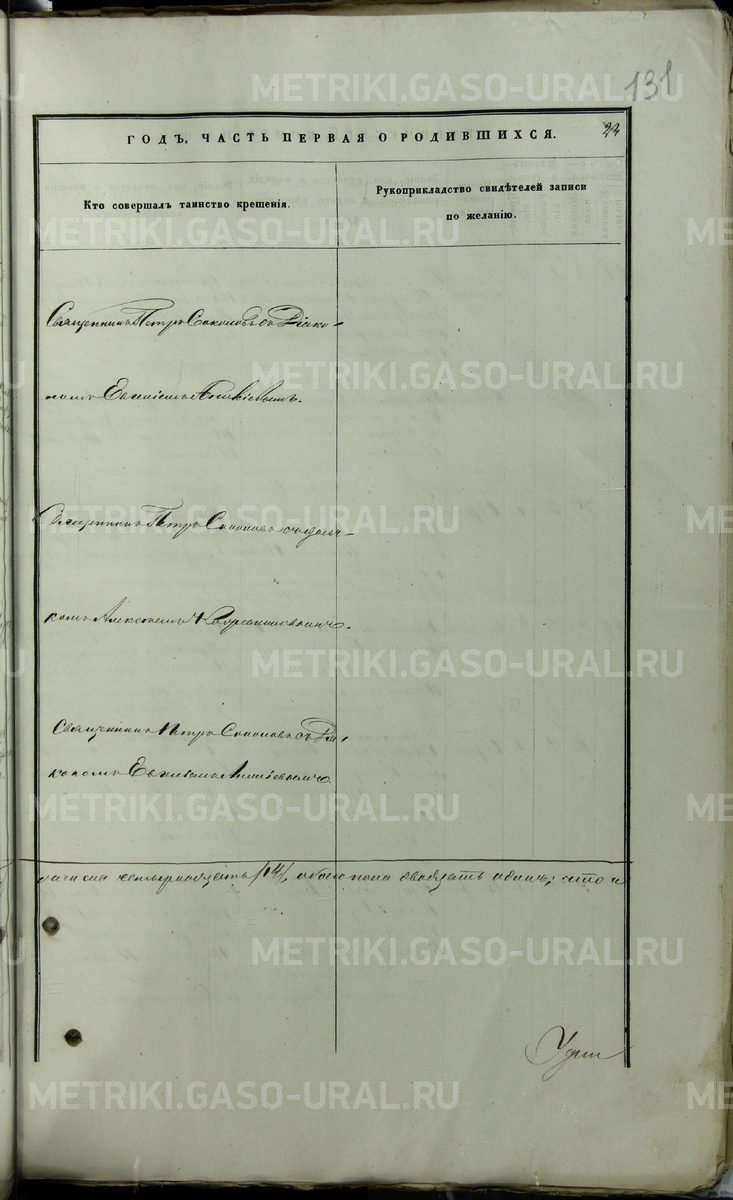 131
ГОДЪ, ЧАСТЬ ПЕРВАЯ О РОДИВШИХСЯ.
Кто совершалъ таинство крещенія.
Рукоприкладство свидѣтелей записи
по желанію.
Священникъ Петръ Соколовъ съ Діако-
номъ Евгеніемъ
Священникъ Петръ Соколовъ съ
Алексѣемъ
Священникъ Петръ Соколовъ съ Діа-
кономъ Евгеніемъ
четырнадцать /14/, обоего пола двадцать одинъ; что и
METRIKI.GASO-URAL.RU